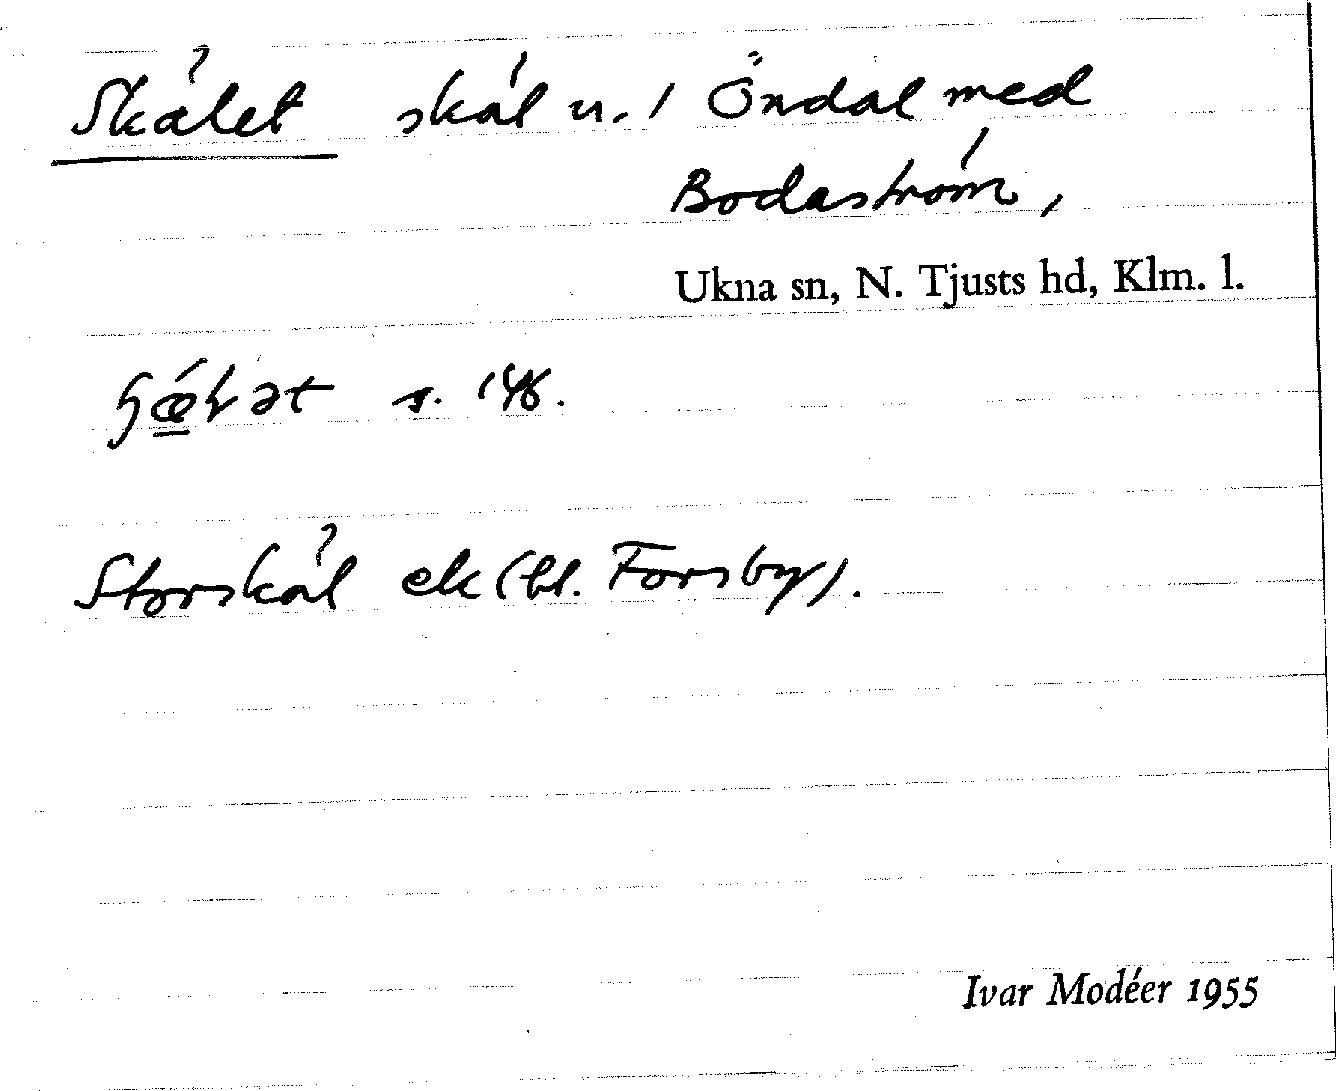 Skälet skäl n. / Öndal med
Bodaström,
Ukna sn, N. Tjusts hd, Klm. l.
s. 146.
Storskäl ek (bl. Forsby).
Ivar Modéer 1955